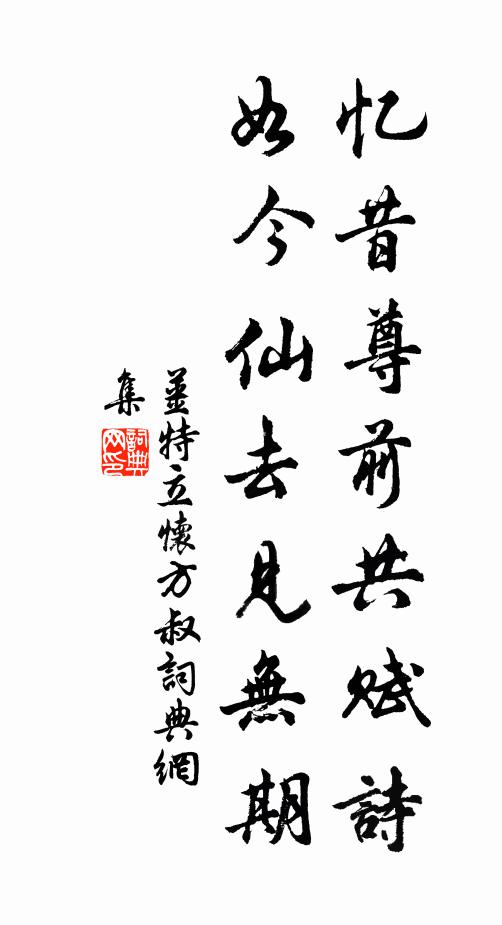 忆昔尊前共赋詩
如今仙去見無期
姜特立懷方叔詞典網
集
詞典
网印